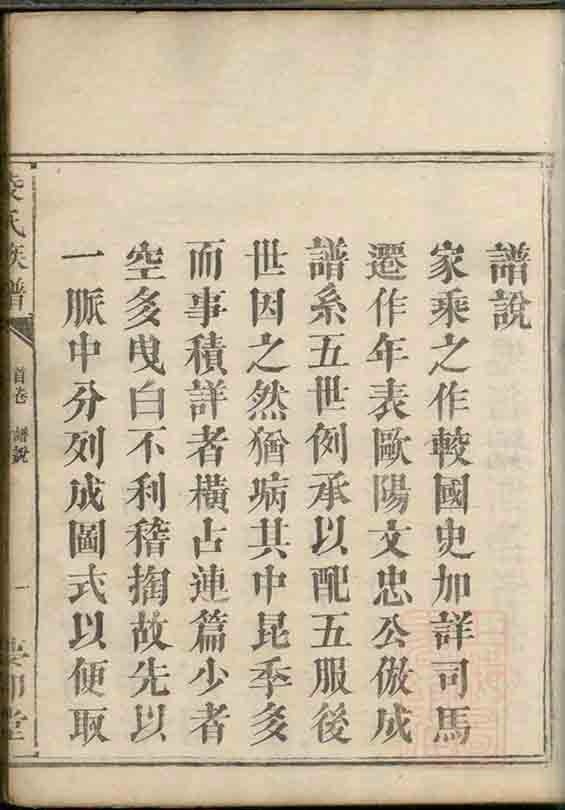 譜說
家乘之作較國史加詳司馬
遷作年表歐陽文忠公倣成
譜系五世例承以配五服後
世因之然猶病其中昆季多
而事積詳者橫占連篇少者
空多曳白不利稽掏故先以
一脈中分列成圖式以便取
氏族譜
首卷 譜說
一
堂